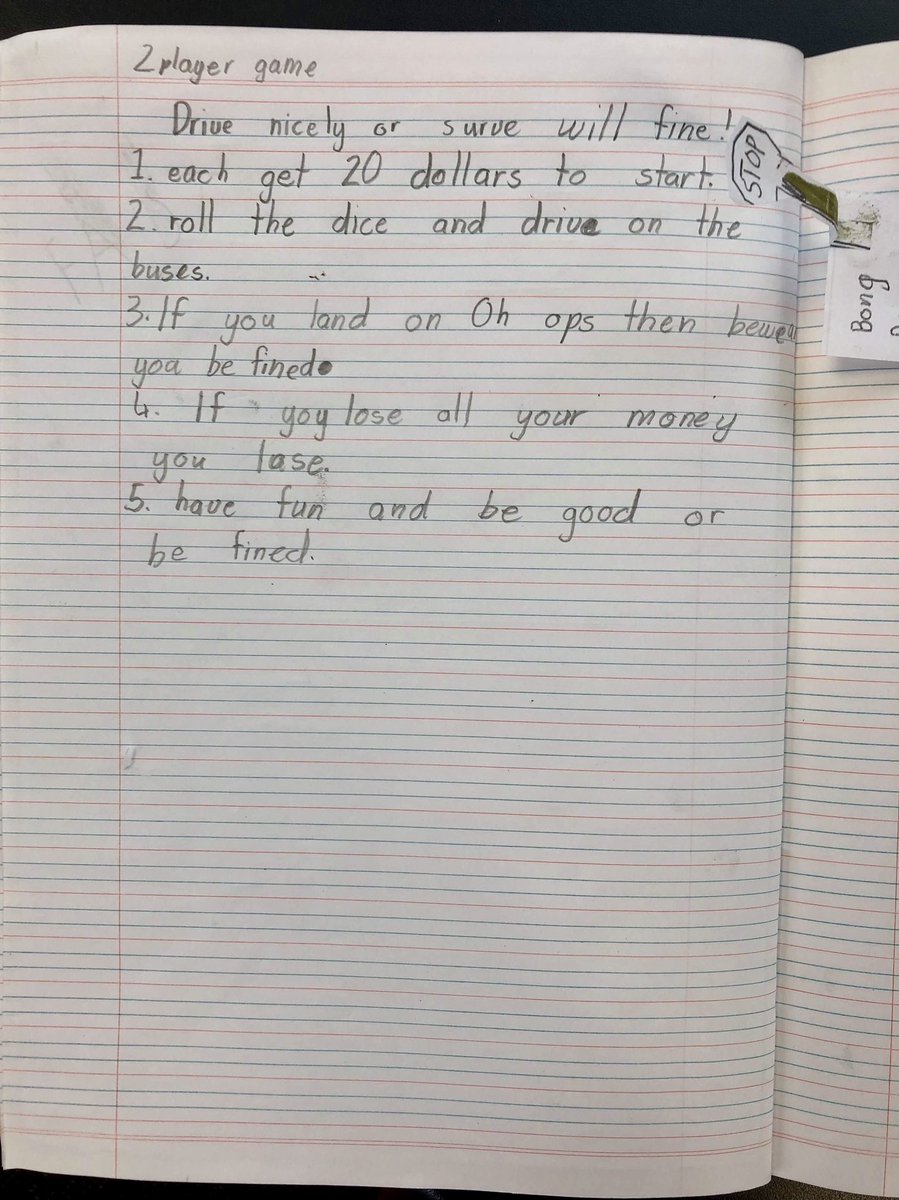 2 player game
Drive nicely or surve will fine!
STOP
1. each get 20 dollars to start.
2. roll the dice and drive on the
buses.
3. If you land on Oh ops then bewear
yoa be fined.
4. If yoy lose all your money
you lase.
5. have fun and be good or
be fined.
Bong